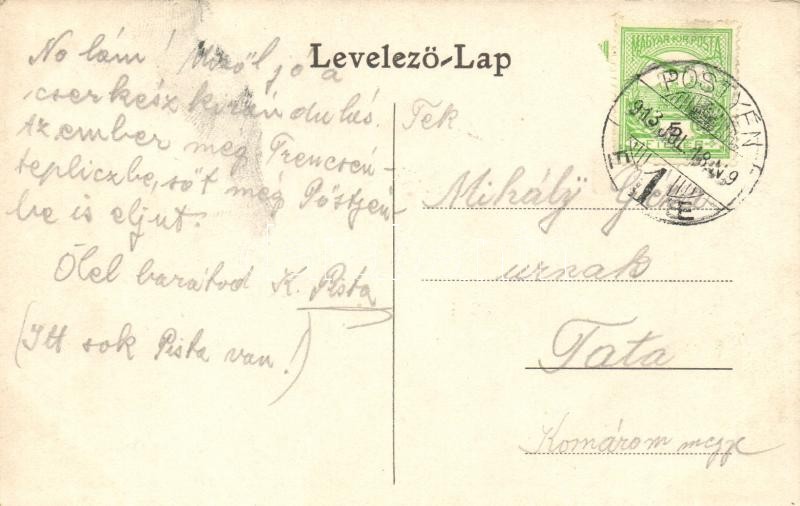 Levelező-Lap
No lám! Miről jó a
cserkészkirándulás.
Az ember meg Trencsén-
tepliczbe, sőt még Pöstjén-
be is eljut.
Ölel barátod K. Pista
(Itt sok Pista van!)
MAGYAR KIR. POSTA
PÖSTYÉN
913 JUL. 18
1 E
Tek
Mihály
urnak
Tata
Komárom megye